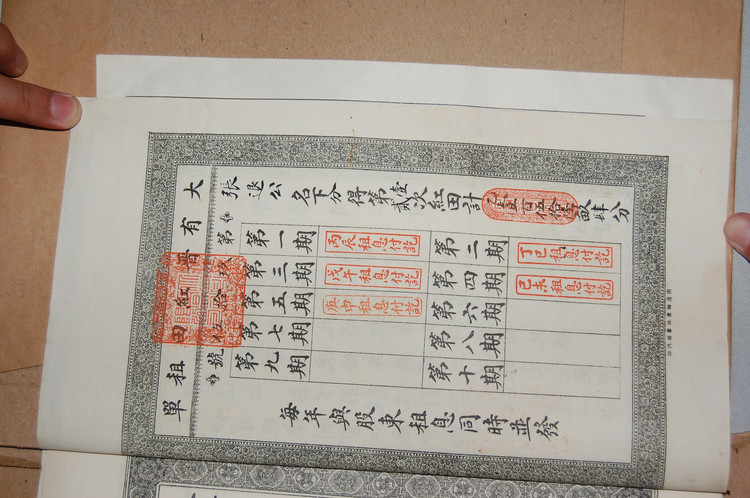 大有晉紅田租單
張退公名下分得第壹貳次紅田計
畝肆分
第
號
第一期
丙辰租息付訖
第二期
丁巳租息付訖
第三期
戊午租息付訖
第四期
己未租息付訖
第五期
庚申租息付訖
第六期
第七期
第八期
第九期
第十期
每年與股東租息同時並發